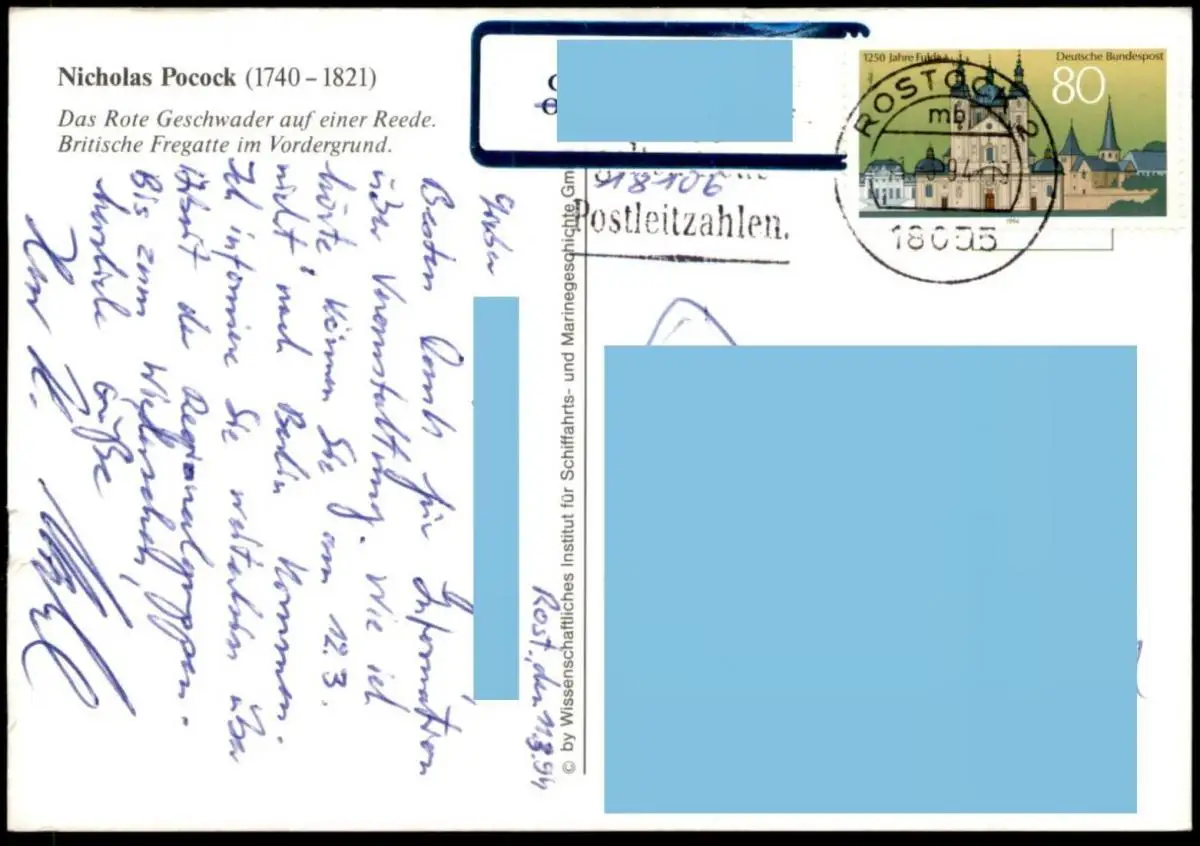 Nicholas Pocock (1740 – 1821)
Das Rote Geschwader auf einer Reede.
Britische Fregatte im Vordergrund.
18106
Postleitzahlen.
1250 Jahre Fulda
Deutsche Bundespost
80
1994
ROSTOCK
mb
18055
© by Wissenschaftliches Institut für Schiffahrts- und Marinegeschichte Gm
Rost., den 11.3.94
Besten Dank für Information
über Veranstaltung. Wie ich
hörte können Sie am 12.3.
nicht nach Berlin kommen.
Ich informiere Sie weiterhin über
Arbeit der Regionalgruppen.
Bis zum Wiedersehen,
herzliche Grüße